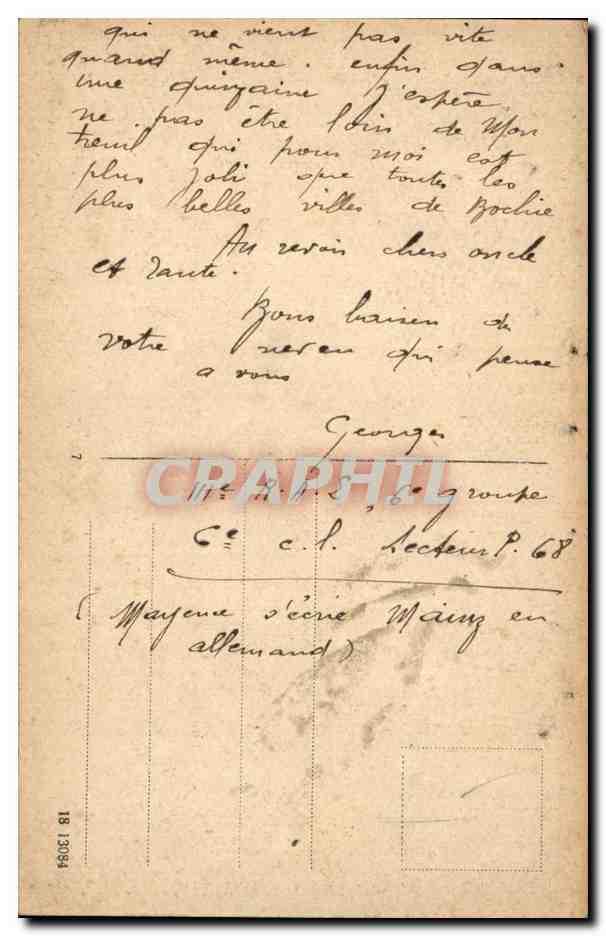 qui ne vient pas vite
quand même. enfin dans
une quinzaine j'espère
ne pas être loin de Mon
treuil qui pour moi est
plus joli que toutes les
plus belles villes de Bochie
Au revoir chers oncle
et Tante.
Bons baisers de
votre neveu qui pense
a vous
Georges
7
CRAPHIL
111e R.A.L, 6e groupe
6e c.l. Secteur P. 68
(Mayence s'écrit Mainz en
allemand)
18 13084